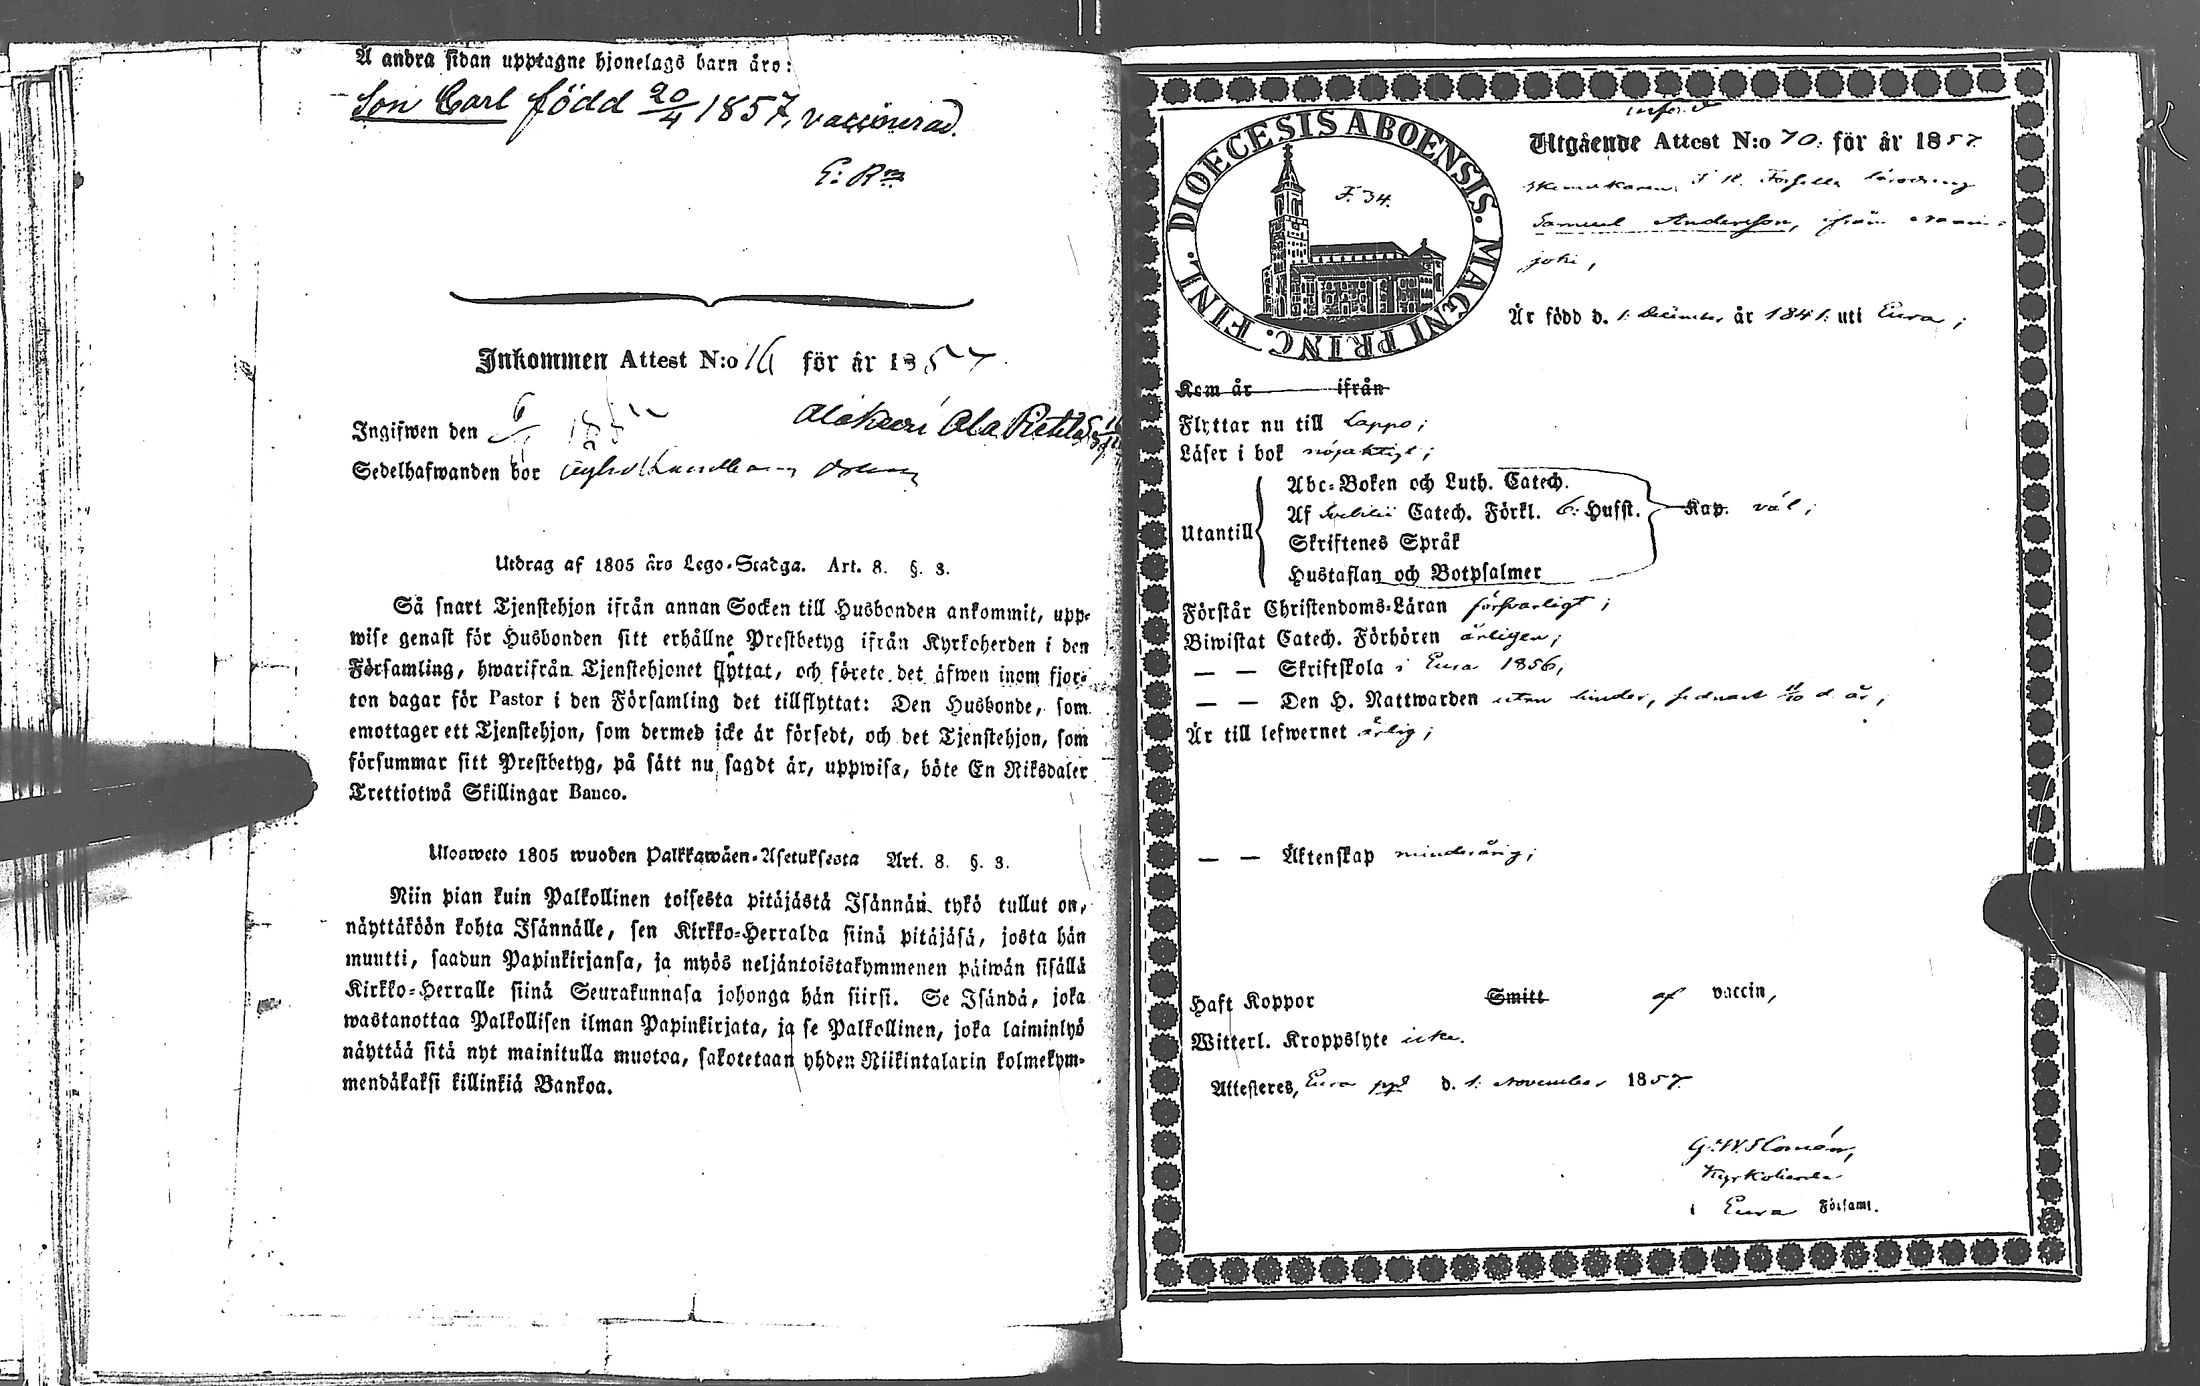 Å andra sidan upptagne hjonelags barn äro:
Son Carl född 20/4 1857, vaccinerad.
Inkommen Attest N:o 16 för år 1857.
Ingifwen den
Sedelhafwanden bor
Utdrag af 1805 års Lego-Stadga. Art. 8. §. 3.
Så snart Tjenstehjon ifrån annan Socken till Husbonden ankommit, upp-
wise genast för Husbonden sitt erhållne Prestbetyg ifrån Kyrkoherden i den
Församling, hwarifrån Tjenstehjonet flyttat, och förete det äfwen inom fjor-
ton dagar för Pastor i den Församling det tillflyttat: Den Husbonde, som
emottager ett Tjenstehjon, som dermed icke är försedt, och det Tjenstehjon, som
försummar sitt Prestbetyg, på sätt nu sagdt är, uppwisa, böte En Riksdaler
Trettiotwå Skillingar Banco.
Ulosweto 1805 wuoden Palkkawäen-Asetuksesta Art. 8. §. 3.
Niin pian kuin Palkollinen toisesta pitäjästä Isännän tykö tullut on,
näyttäköön kohta Isännälle, sen Kirkko-Herralda siinä pitäjäsä, josta hän
muutti, saadun Papinkirjansa, ja myös neljäntoistakymmenen päiwän sisällä
Kirkko-Herralle siinä Seurakunnasa johonga hän siirsi. Se Isändä, joka
wastanottaa Palkollisen ilman Papinkirjata, ja se Palkollinen, joka laiminlyö
näyttää sitä nyt mainitulla muotoa, sakotetaan yhden Riikintalarin kolmekym-
mendäkaksi killinkiä Bankoa.
DIOECESIS ABOENSIS. MAGNI PRINC. FINL.
F. 34.
Utgående Attest N:o 70. för år 1857.
Samuel Andersson, ifrån
joki,
Är född d. 1. December år 1841. uti Eura;
Kom år ifrån
Flyttar nu till Lappo;
Läser i bok nöjaktigt;
Utantill
Abc-Boken och Luth. Catech.
Af Svebilii Catech. Förkl. 6: Hufst. Kap. väl;
Skriftenes Språk
Hustaflan och Botpsalmer
Förstår Christendoms-Läran försvarligt;
Biwistat Catech. Förhören årligen;
— — Skriftskola i Eura 1856,
— — Den H. Nattwarden utan hinder, sednast d. år;
Är till lefwernet ärlig;
— — Äktenskap minderårig;
Haft Koppor Smitt af vaccin,
Witterl. Kroppslyte icke.
Attesteres, Eura d. 1. November 1857.
Kyrkoherde
i Eura Församl.